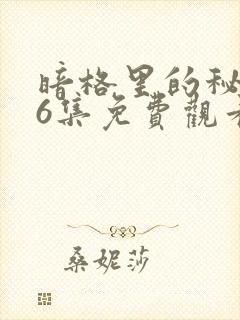 暗格里的秘
6集免費觀看
桑妮莎